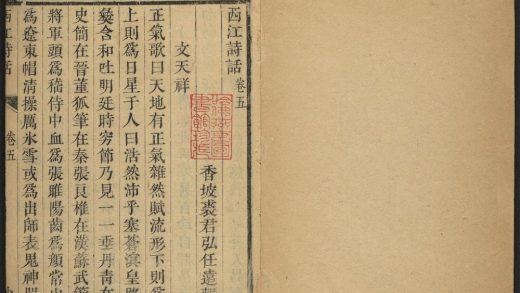 西江詩話 卷五
香坡裘君弘任遠
文天祥
正氣歌曰天地有正氣雜然賦流形下則爲
上則爲日星于人曰浩然沛乎塞蒼溟皇路
含和吐明廷時窮節乃見一一垂丹青在
史簡在晉董狐筆在秦張良椎在漢蘇武節
將軍頭爲嵇侍中血爲張睢陽齒爲顏常山
爲遼東帽清操厲氷雪或爲出師表鬼神
西江詩話 卷五